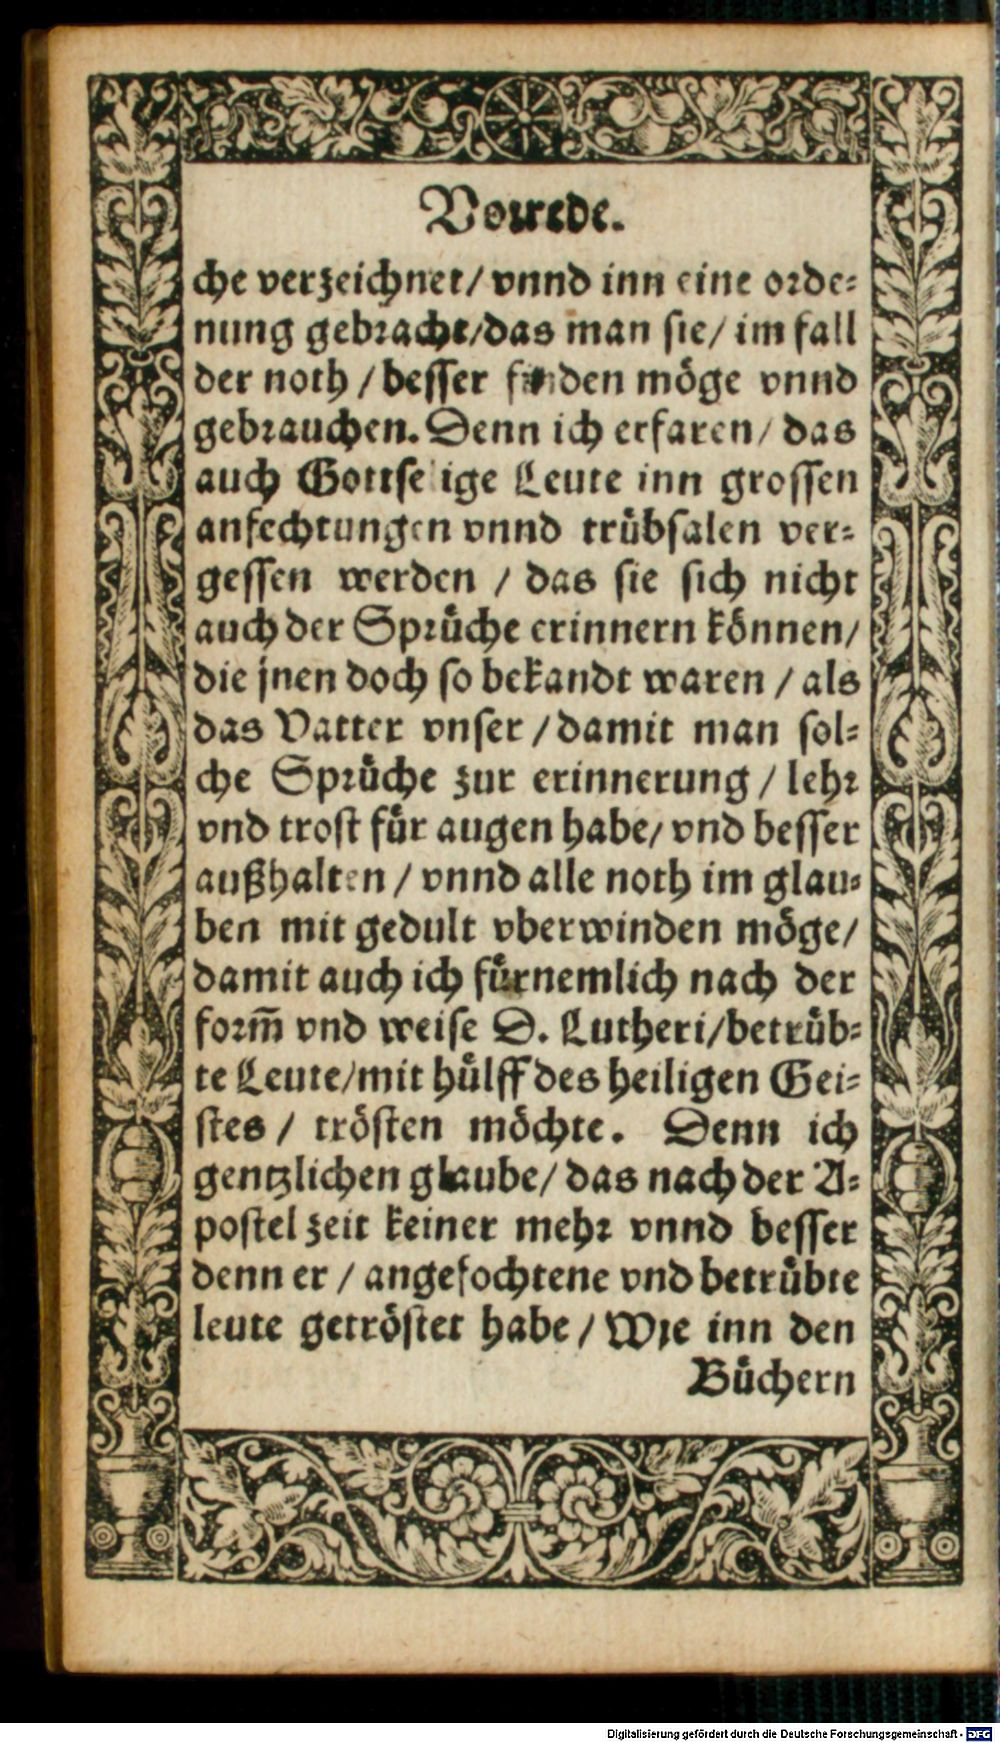 Vorrede.
che verzeichnet/ vnnd inn eine orde-
nung gebracht/das man sie/ im fall
der noth / besser finden möge vnnd
gebrauchen. Denn ich erfaren/ das
auch Gottselige Leute inn grossen
anfechtungen vnnd trübsalen ver-
gessen werden / das sie sich nicht
auch der Sprüche erinnern können/
die jnen doch so bekandt waren / als
das Vatter vnser / damit man sol-
che Sprüche zur erinnerung / lehr
vnd trost für augen habe/ vnd besser
außhalten / vnnd alle noth im glau-
ben mit gedult vberwinden möge/
damit auch ich fürnemlich nach der
form̃ vnd weise D. Lutheri/betrüb-
te Leute/mit hülff des heiligen Gei-
stes / trösten möchte. Denn ich
gentzlichen glaube/ das nach der A-
postel zeit keiner mehr vnnd besser
denn er / angefochtene vnd betrübte
leute getröstet habe / Wje inn den
Büchern
Digitalisierung gefördert durch die Deutsche Forschungsgemeinschaft - DFG